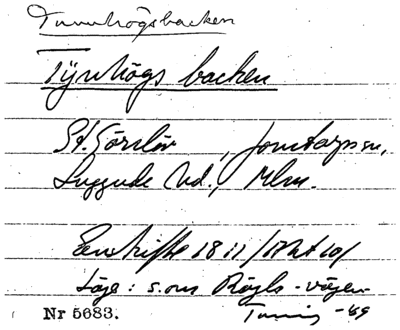 Tunnhögsbacken
Tynhögs backen
St. Görslöv, Jonstorps sn,
Luggude hd., Mlm.
Enskifte 1811/Akt 10/
Läge: s. om Rögle-vägen
Nr 5683. -69